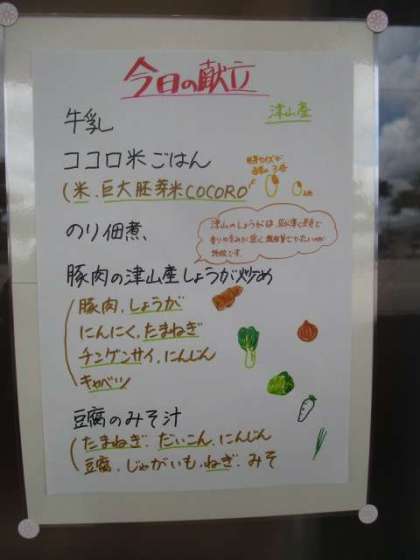 今日の献立
津山産
牛乳
ココロ米ごはん
(米、巨大胚芽米COCORO)
のり佃煮、
津山のしょうがは、
特徴です。
豚肉の津山産しょうが炒め
豚肉、しょうが
にんにく、たまねぎ
チンゲンサイ、にんじん
キャベツ
豆腐のみそ汁
たまねぎ、だいこん、にんじん
豆腐、じゃがいも、ねぎ、みそ